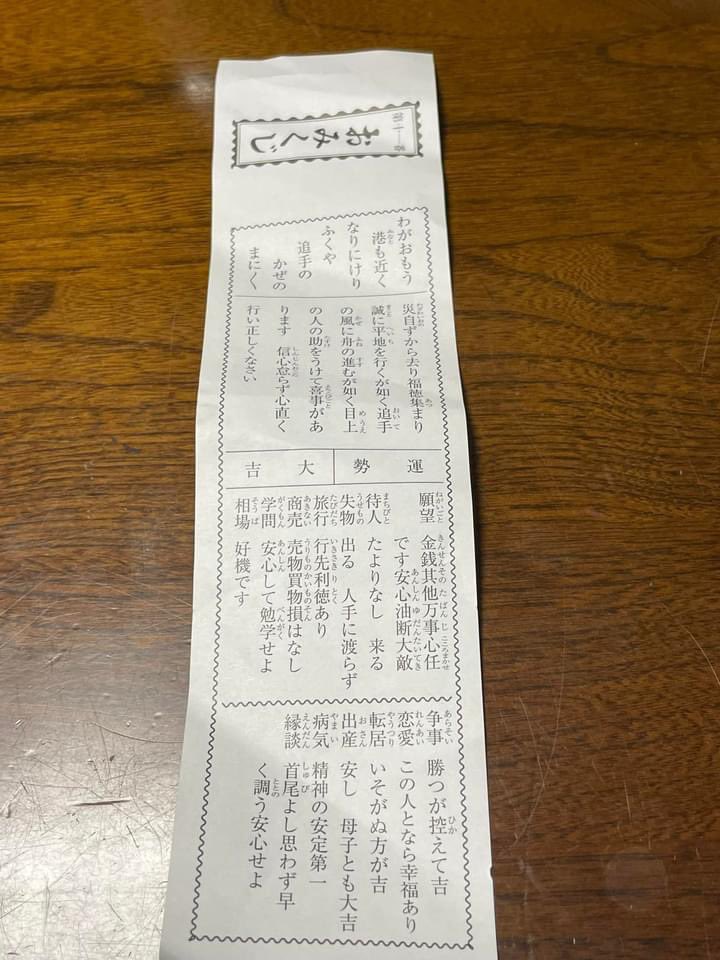 第十一番
おみくじ
わがおもう
港も近く
なりにけり
ふくや
追手の
かぜの
まにく
災自ずから去り福徳集まり
誠に平地を行くが如く追手
の風に舟の進むが如く目上
の人の助をうけて喜事があ
ります 信心怠らず心直く
行い正しくなさい
運勢 大吉
願望 金銭其他万事心任
です安心油断大敵
待人 たよりなし 来る
失物 出る 人手に渡らず
旅行 行先利徳あり
商売 売物買物損はなし
学問 安心して勉学せよ
相場 好機です
争事 勝つが控えて吉
恋愛 この人となら幸福あり
転居 いそがぬ方が吉
出産 安し 母子とも大吉
病気 精神の安定第一
縁談 首尾よし思わず早
く調う安心せよ